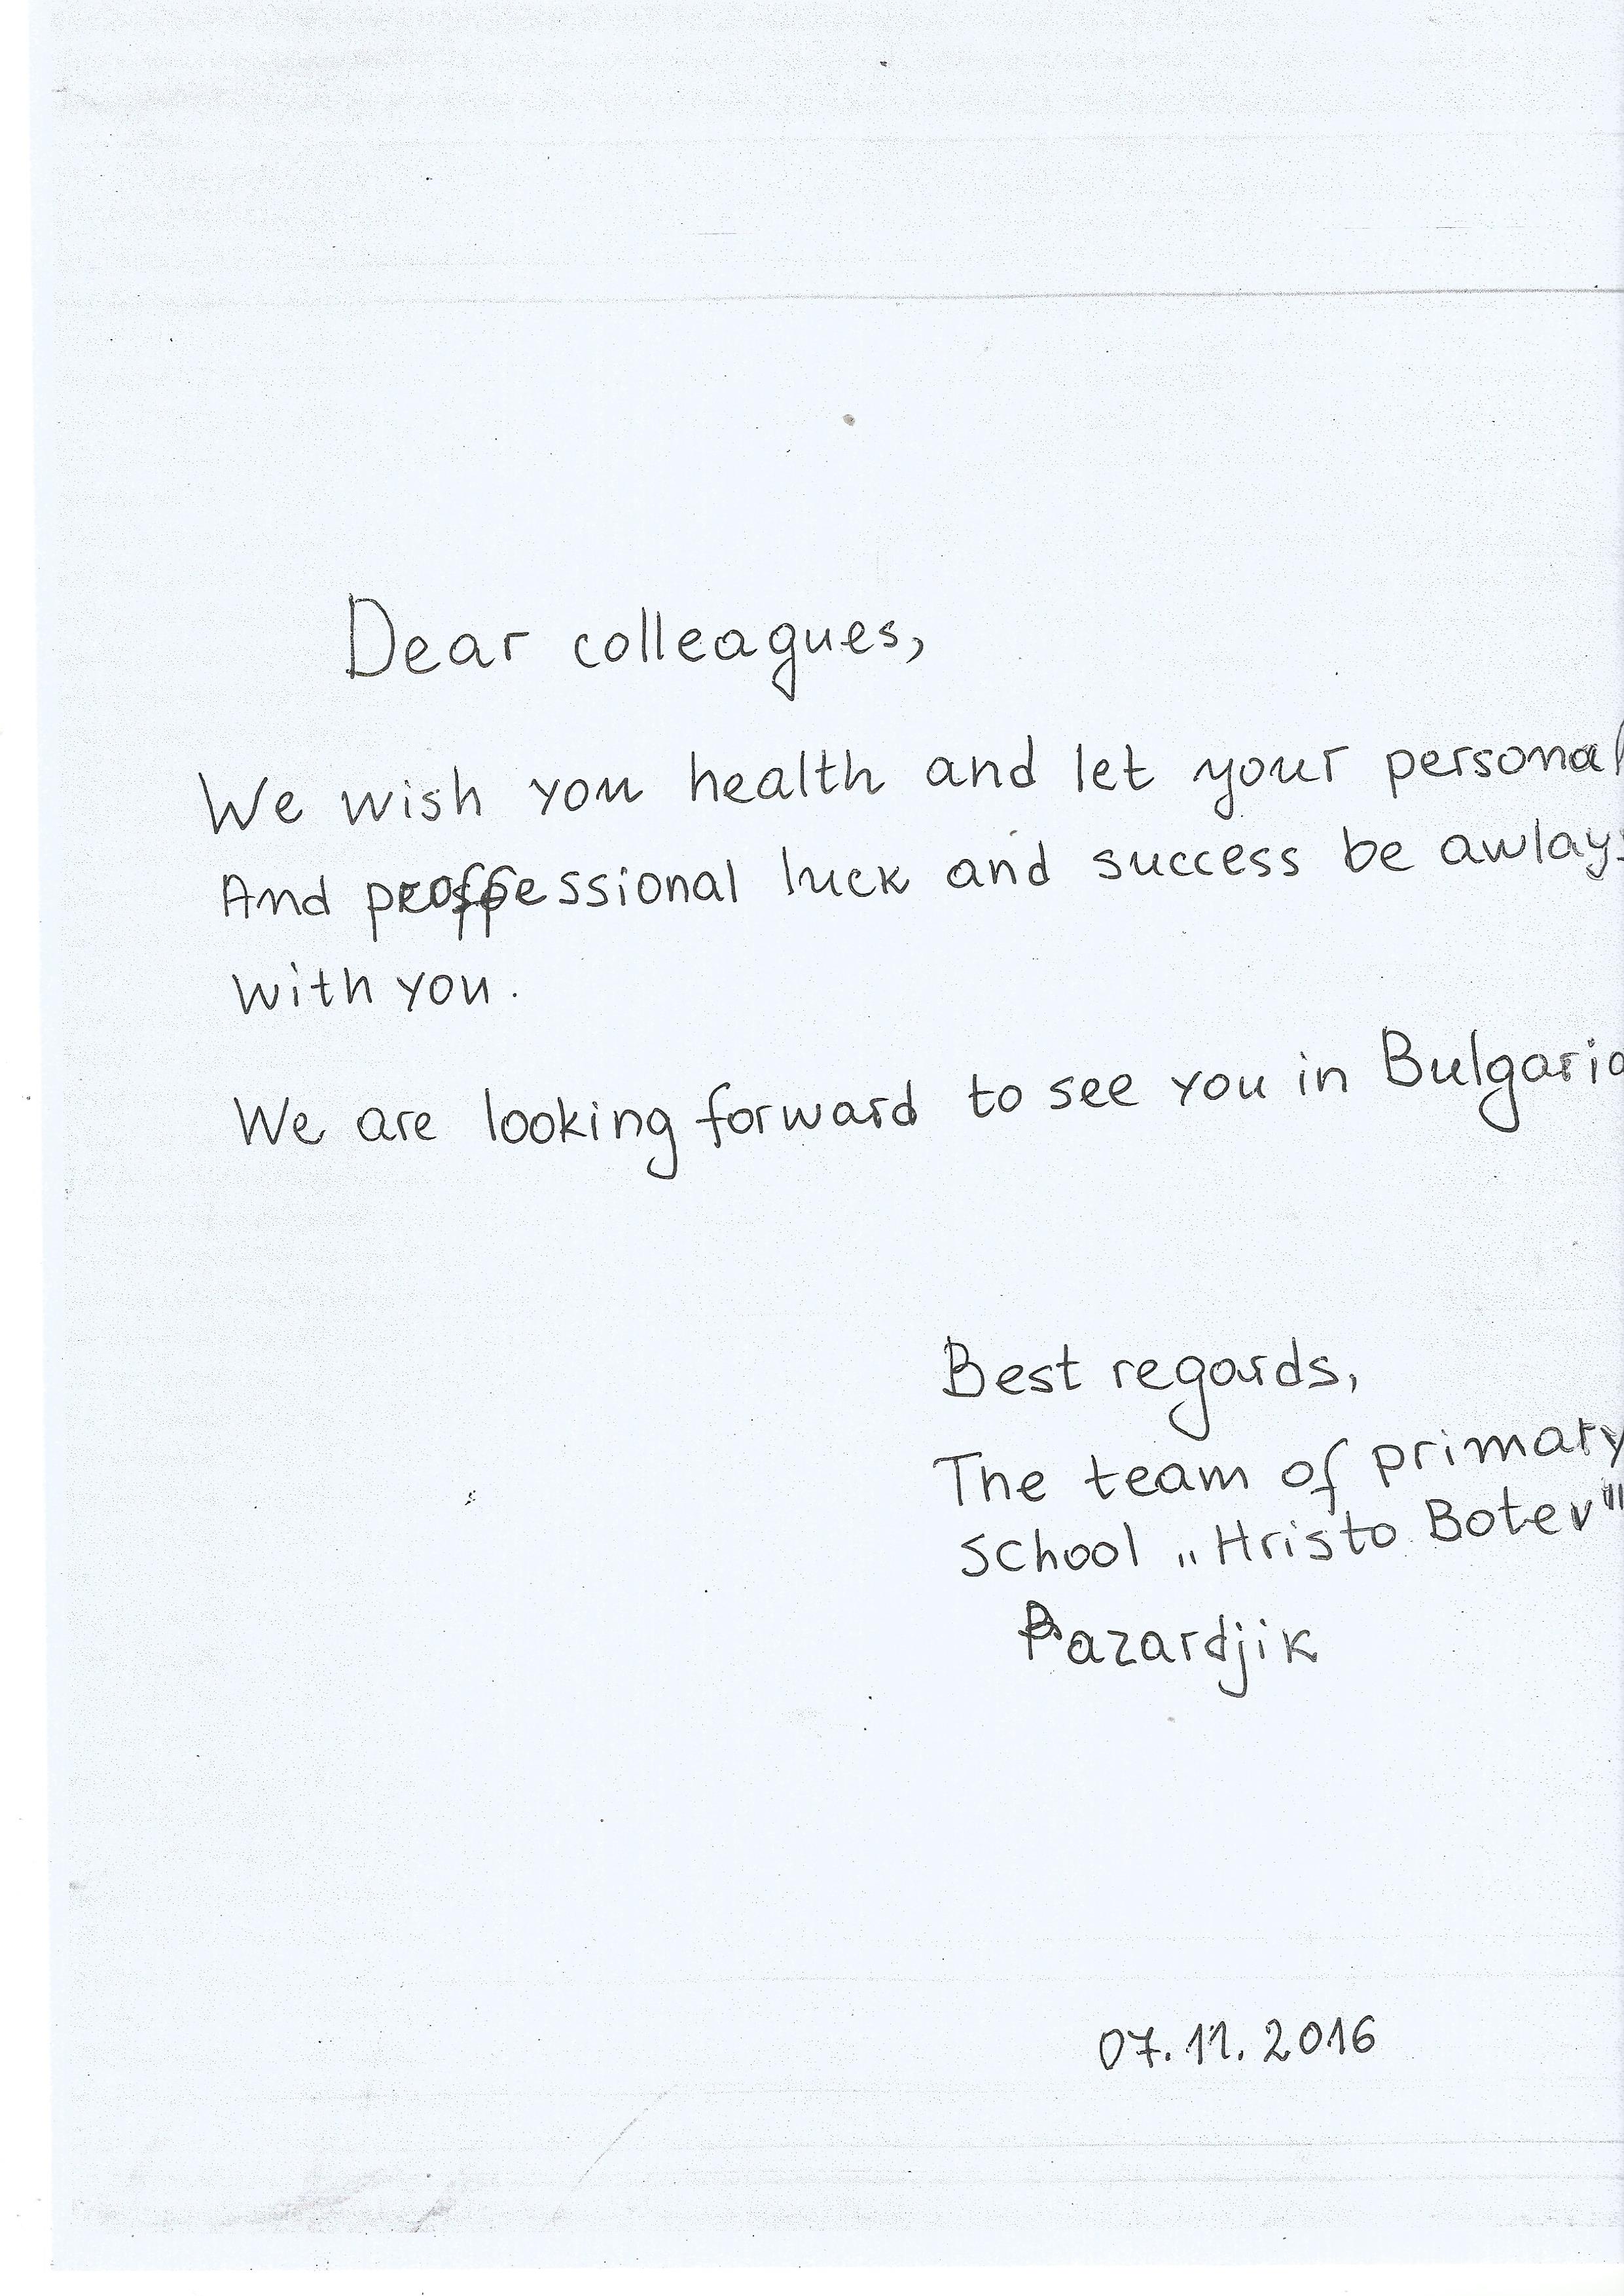 Dear colleagues,
We wish you health and let your personal
And proffessional luck and success be awlays
with you.
We are looking forward to see you in Bulgaria
Best regards,
The team of primary
school „Hristo Botev"
Pazardjik
07.11.2016